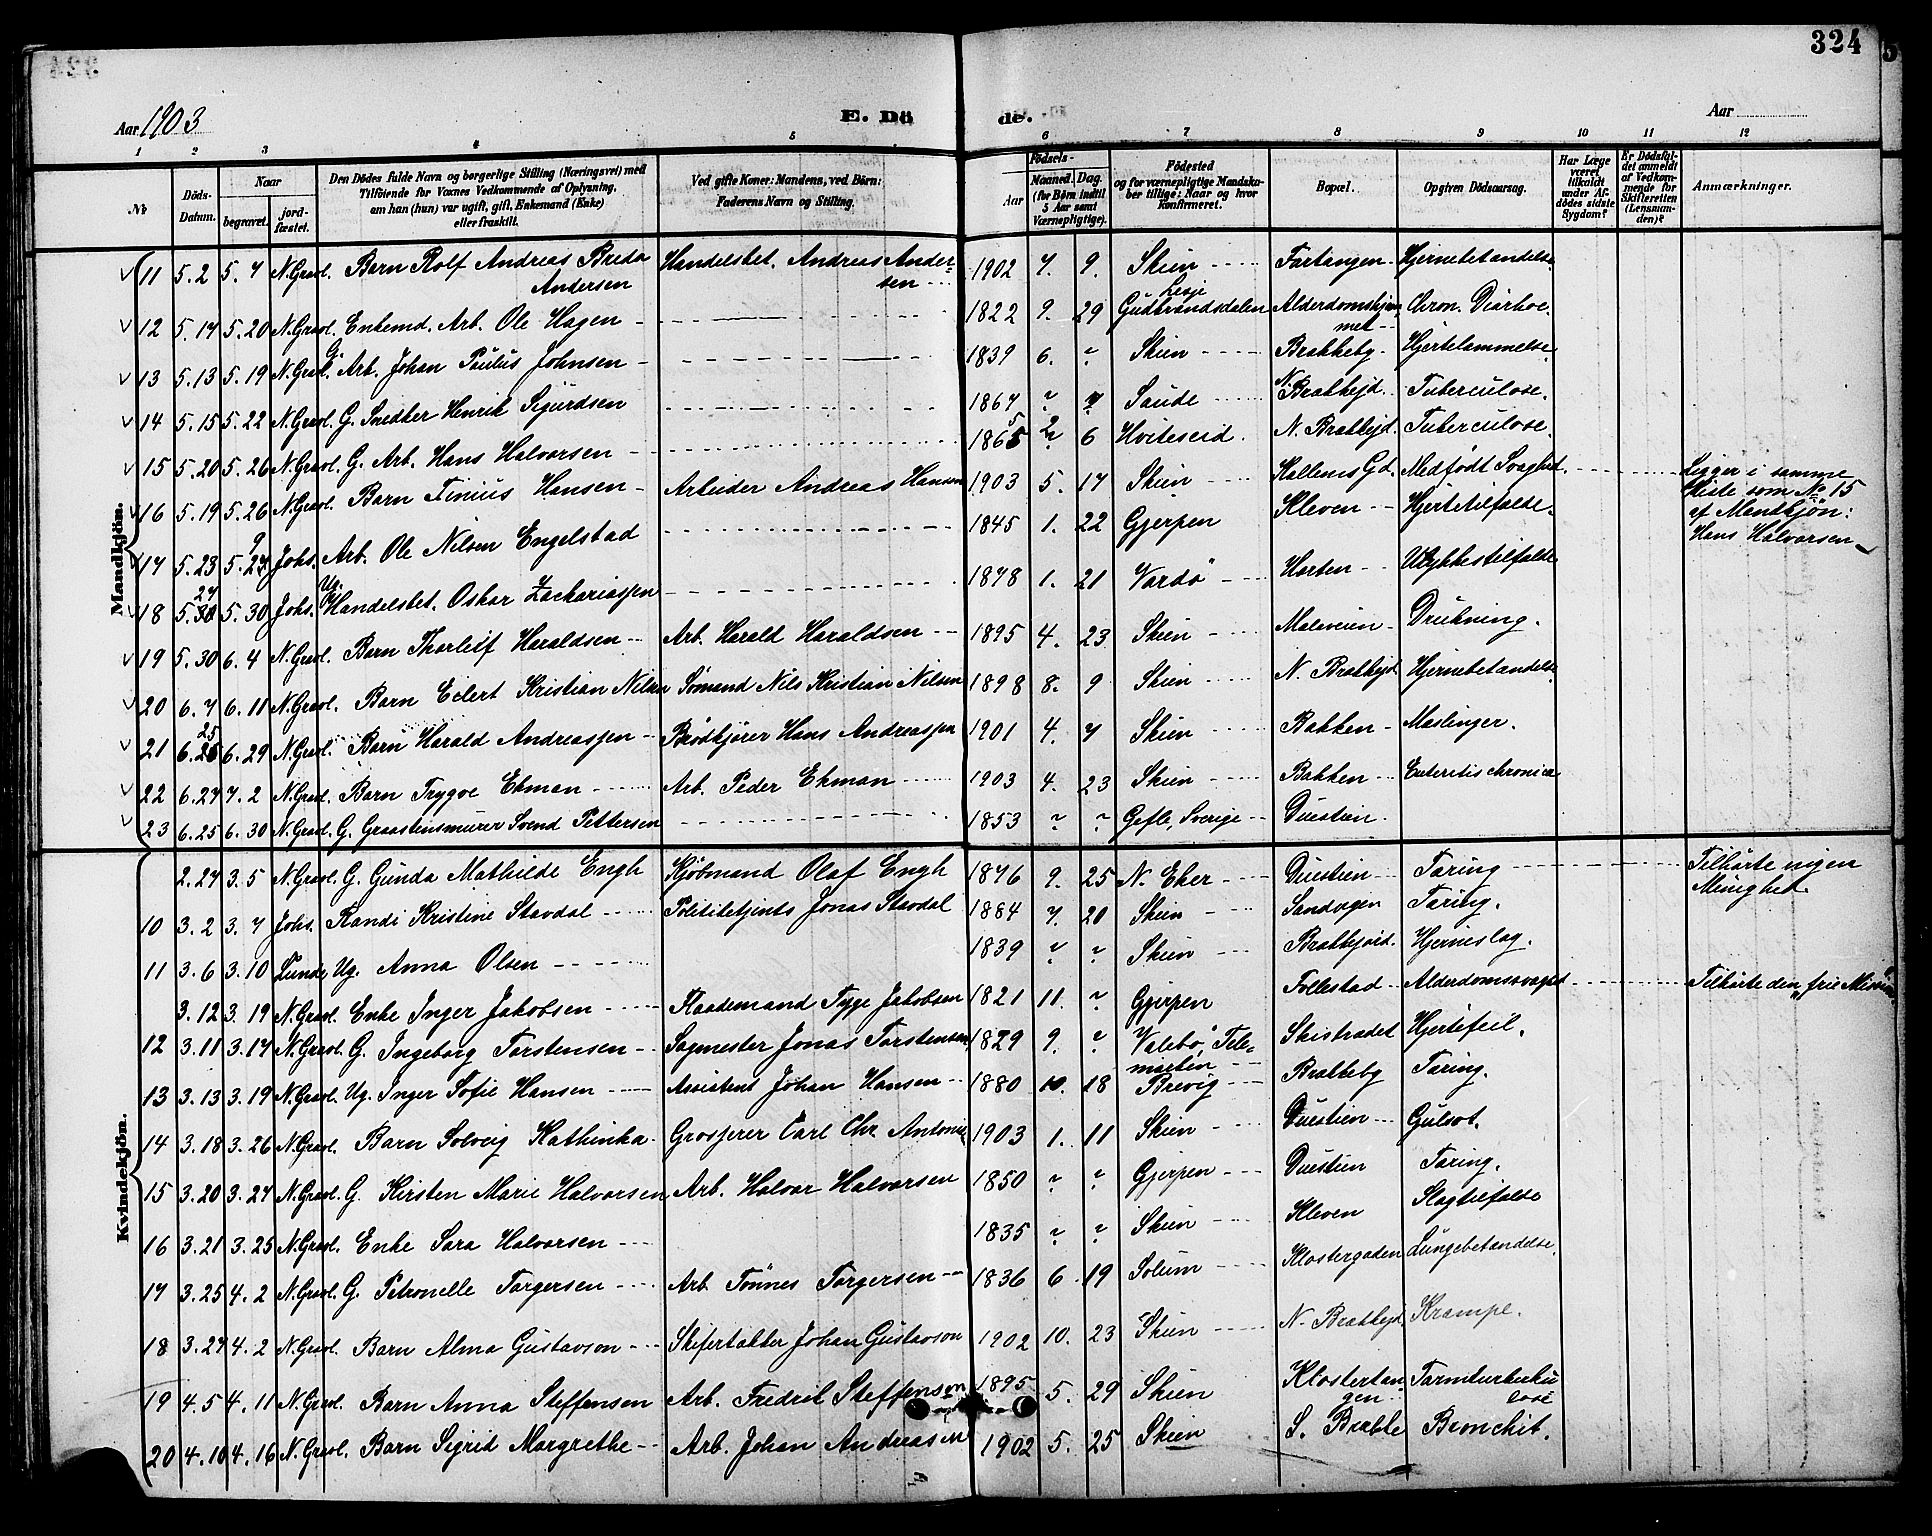 324
Aar 1903
E. Dö
de.
Aar
1 2 3 4 5 6 7 8 9 10 11 12
№
Döds-Datum.
Naar
begravet.
jord-fæstet.
Den Dödes fulde Navn og borgerlige Stilling (Næringsvei) med
Tilföiende for Voxnes Vedkommende af Oplysning,
om han (hun) var ugift, gift, Enkemand (Enke)
eller fraskilt.
Ved gifte Koner: Mandens, ved Börn:
Faderens Navn og Stilling.
Födsels-
Aar
Maaned. Dag.
(for Börn indtil
5 Aar samt
Værnepligtige).
Födested
og for værnepligtige Mandska-
ber tillige: Naar og hvor
konfirmeret.
Bopæl.
Opgiven Dödsaarsag.
Har Læge
været
tilkaldt
under Af-
dödes sidste
Sygdom?
Er Dödsfal-
det anmeldt
af Vedkom-
mende for
Skifteretten
(Lensman-
den)?
Anmærkninger.
Mandkjön.
11 5.2 5.7 N.Gravl. Barn Rolf Andreas Breda Andersen Handelsbet. Andreas Andersen 1902 7. 9. Skien Fartangen Hjernebetændelse
12 5.14 5.20 N.Gravl. Enkemd. Arb. Ole Hagen 1822 9. 29 Lesje Gudbrandsdalen Alderdomshjemmet Chron. Diarhoe.
13 5.13 5.19 N.Gravl. G. Arb. Johan Paulus Johnsen 1839 6. ? Skien Brakkeby Hjertelammelse
14 5.15 5.22 N.Gravl. G. Snedker Henrik Sigurdsen 1867 ? 7 Saude N. Brekkejd. Tuberculose.
15 5.20 5.26 N.Gravl. G. Arb. Hans Halvorsen 1865 2 6 Hviteseid. N. Brekkejd. Tuberculose.
16 5.19 5.26 N.Gravl. Barn Tinius Hansen Arbeider Andreas Hansen 1903 5. 17 Skien Hollems Gd. Medfödt Svaghed Ligger i samme
Kiste som No 15
af Mandkjön:
Hans Halvorsen
17 5.23 5.29 Johs. Arb. Ole Nilsen Engelstad 1845 1. 22 Gjerpen Kleven Hjertetilfælde.
18 5.27 5.30 Johs. Ug. Handelsbet. Oskar Zachariassen 1878 1. 21 Vardö Horten Ulykkestilfælde
19 5.30 6.4 N.Gravl. Barn Thorleif Haraldsen Arb. Harald Haraldsen 1895 4. 23 Skien Møleveien Drukning.
20 6.7 6.11 N.Gravl. Barn Eilert Kristian Nilsen Sömand Nils Kristian Nilsen 1898 8. 9 Skien N. Brekkejd. Hjernebetændelse
21 6.25 6.29 N.Gravl. Barn Harald Andreassen Brödkjörer Hans Andreassen 1901 4. 7 Skien Bakken Mæslinger.
22 6.27 7.2 N.Gravl. Barn Trygve Ekman Arb. Peder Ekman 1903 4. 23 Skien Bakken Enteritis chronica
23 6.25 6.30 N.Gravl. G. Graastensmurer Svend Pettersen 1853 ? ? Gefle, Sverige Duestien.
Kvindekjön.
2.27 3.5 N.Gravl. G. Gunda Mathilde Engh Kjöbmand Olaf Engh 1876 9. 25 N. Eker Duestien Tæring Tilhörte ingen
Menighed
10 3.2 3.7 Johs. Randi Kristine Stavdal Polititetjents Jonas Stavdal 1884 7. 20 Skien Sandvegen Tæring.
11 3.6 3.10 Lunde Ug. Anna Olsen 1839 ? ? Skien Brekkejord. Hjerneslag.
3.12 3.19 N.Gravl. Enke Inger Jakobsen Raademand Tyge Jakobsen 1821 11 ? Gjerpen Follestad Alderdomssvaghed Tilhörte den „frie Mission"
12 3.11 3.17 N.Gravl. G. Ingeborg Torstensen Sagmester Jonas Torstensen 1829 9. ? Valebö, Telemarken Skistredet Hjertefeil.
13 3.13 3.19 N.Gravl. Ug. Inger Sofie Hansen Assistent Johan Hansen 1880 10. 18 Brevig Brekkeby Tæring.
14 3.18 3.26 N.Gravl. Barn Solveig Kathinka Grosserer Carl Chr. Antonie 1903 1. 11 Skien Duestien Gulsot.
15 3.20 3.27 N.Gravl. G. Kirsten Marie Halvorsen Arb. Halvor Halvorsen 1850 ? ? Gjerpen Duestien Tæring.
16 3.21 3.25 N.Gravl. Enke Sara Halvorsen 1835 ? ? Skien Kleven Slagtilfælde
17 3.25 4.2 N.Gravl. G. Petronelle Torgersen Arb. Tönnes Torgersen 1836 6 19 Solum Klostergaden Lungebetændelse.
18 3.27 4.2 N.Gravl. Barn Alma Gustavson Skifertækker Johan Gustavson 1902 10. 23 Skien N. Brekkejd. Krampe.
19 4.5 4.11 N.Gravl. Barn Anna Steffensen Arb. Fredrik Steffensen 1895 5. 29 Skien Klostertangen Tarmturberkulose
20 4.10 4.16 N.Gravl. Barn Sigrid Margrethe Arb. Johan Andreasen 1902 5. 25 Skien S. Brekke Bronchit.